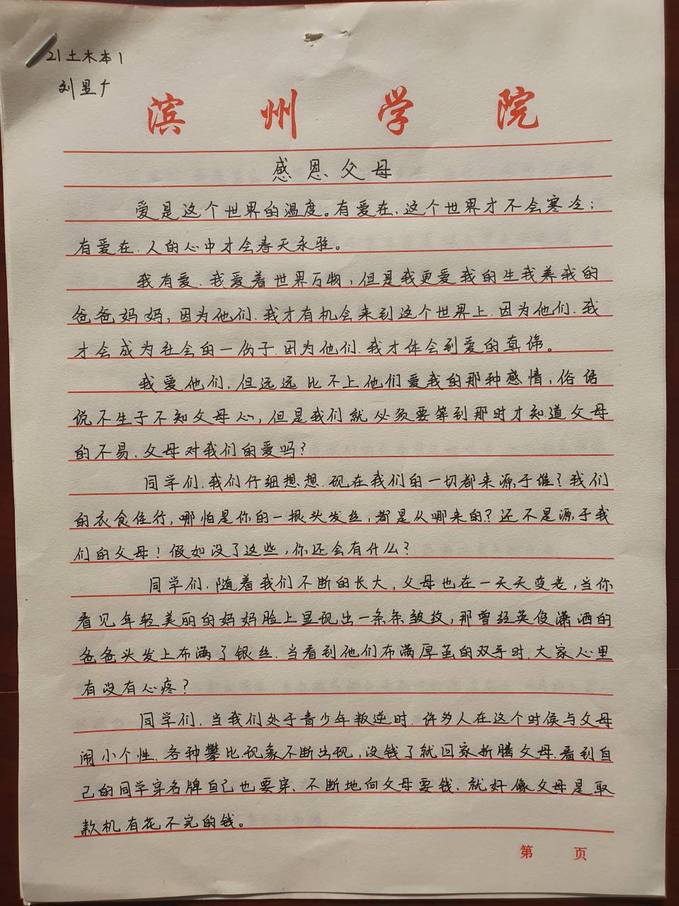 21土木本1
刘昱广
滨州学院
感恩父母
爱是这个世界的温度。有爱在,这个世界才不会寒冷;
有爱在,人的心中才会春天永驻。
我有爱,我爱着世界万物,但是我更爱我的生我养我的
爸爸妈妈,因为他们,我才有机会来到这个世界上,因为他们,我
才会成为社会的一份子,因为他们,我才体会到爱的真谛。
我爱他们,但远远比不上他们爱我的那种感情,俗话
说不生子不知父母心,但是我们就必须要等到那时才知道父母
的不易,父母对我们的爱吗?
同学们,我们仔细想想,现在我们的一切都来源于谁?我们
的衣食住行,哪怕是你的一根头发丝,都是从哪来的?还不是源于我
们的父母!假如没了这些,你还会有什么?
同学们,随着我们不断的长大,父母也在一天天变老,当你
看见年轻美丽的妈妈脸上呈现出一条条皱纹,那曾经英俊潇洒的
爸爸头发上布满了银丝,当看到他们布满厚茧的双手时,大家心里
有没有心疼?
同学们,当我们处于青少年叛逆时,许多人在这个时候与父母
闹小个性,各种攀比现象不断出现,没钱了就回家折腾父母,看到自
己的同学穿名牌自己也要穿、不断地向父母要钱,就好像父母是取
款机有花不完的钱。
第 页